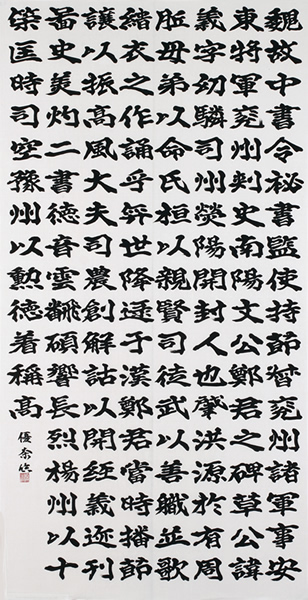 魏故中書令秘書監使持節督兗州諸軍事安
東將軍兗州刺史南陽文公鄭君之碑草公諱
羲字幼驎司州滎陽開封人也肇洪源於有周
胙母弟以命氏桓以親賢司徒武以善職並歌
緇衣之作誦乎弈世降逮于漢鄭君當時播節
讓以振高風大夫司農創解詁以開經義迹刊
圖史美灼二書德音雲翻碩響長烈楊州以十
策匡時司空豫州以勳德著稱高
優奈